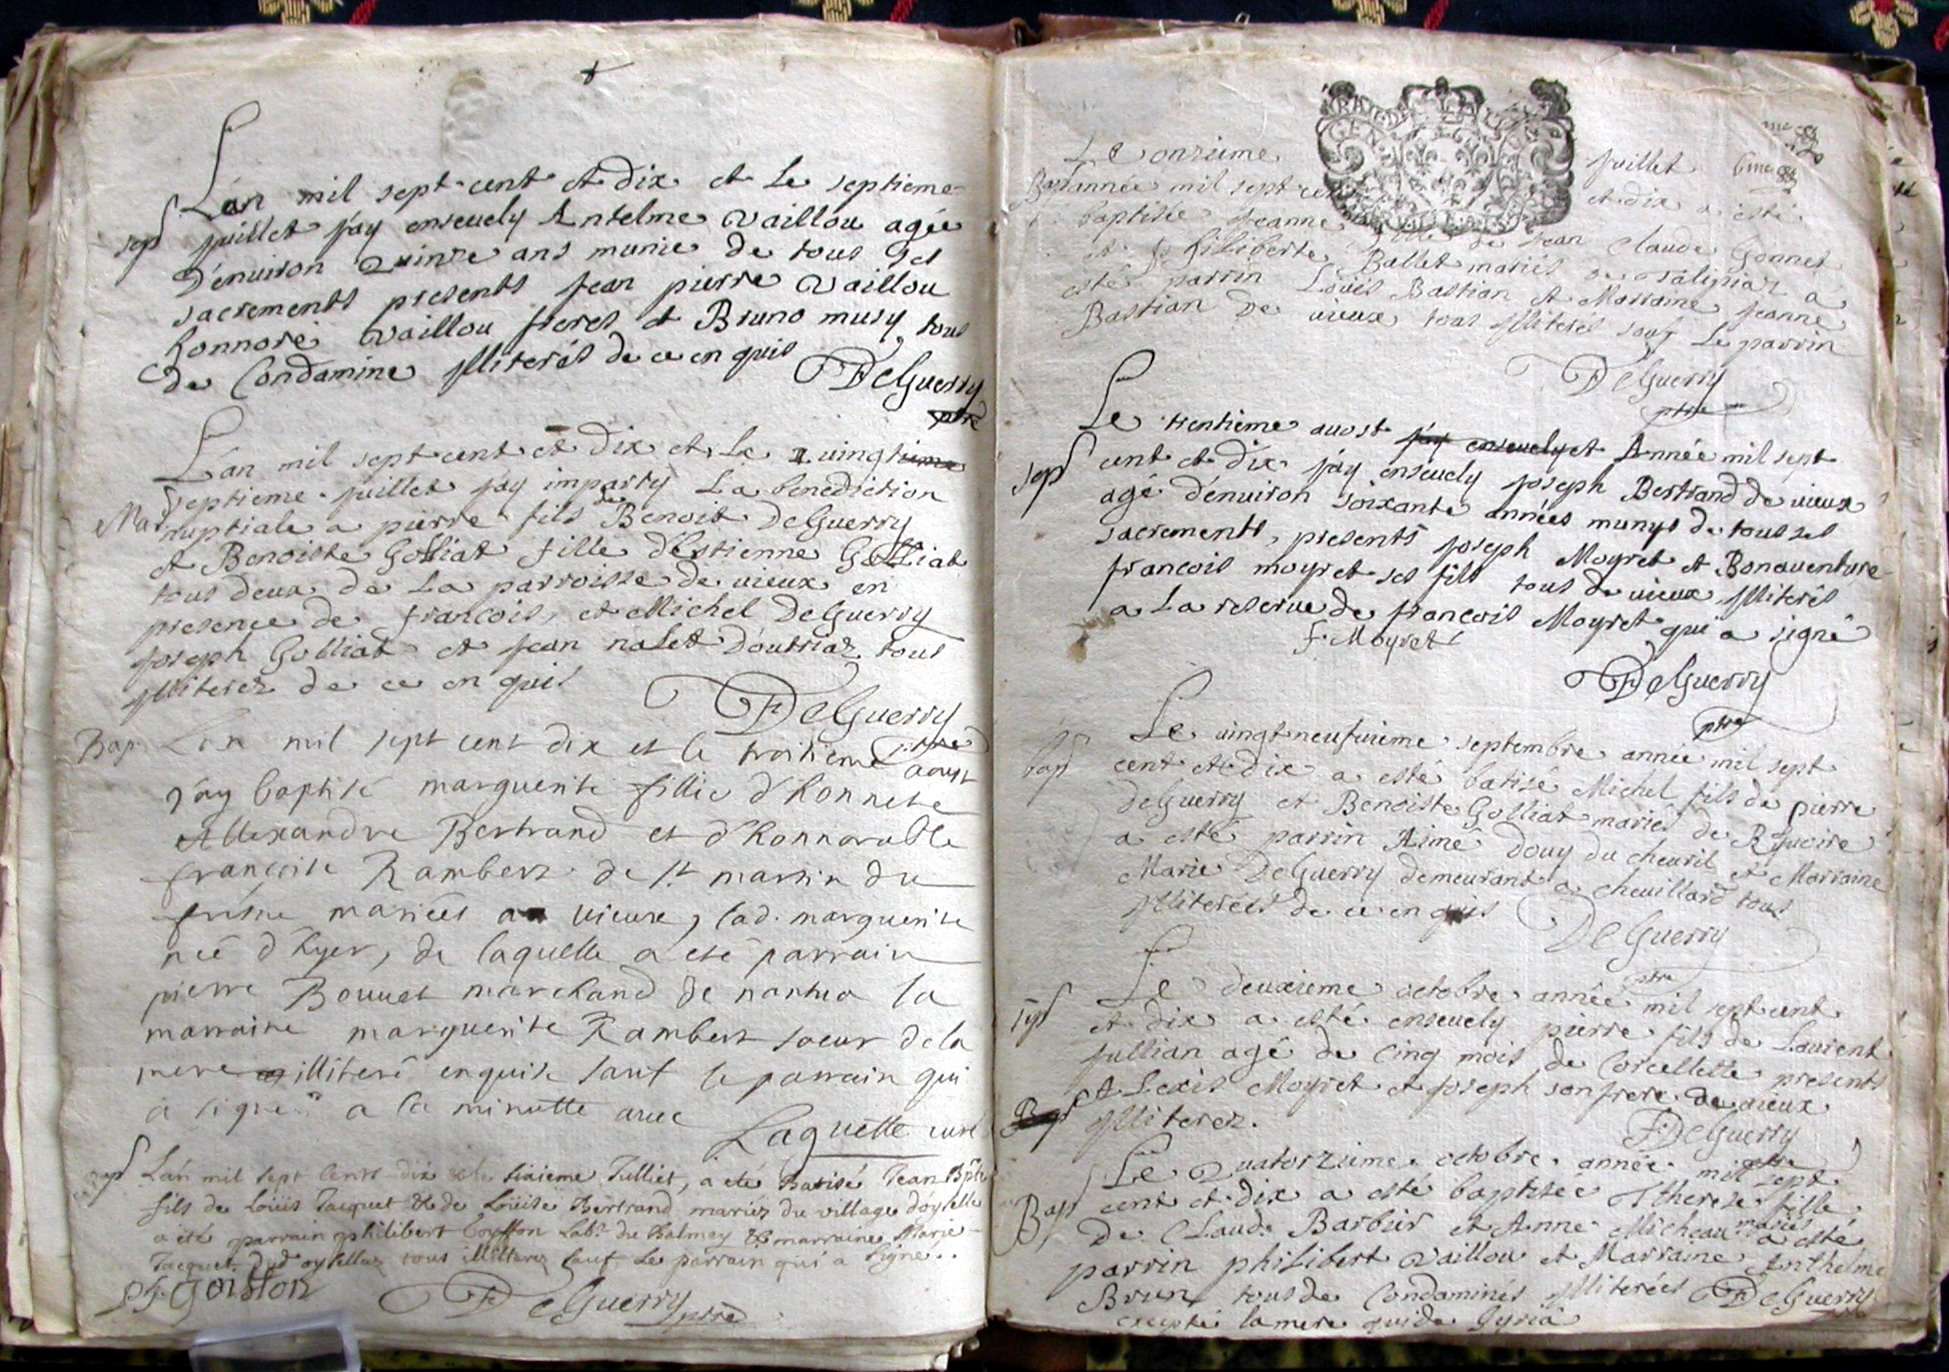 L'an mil sept cent et dix et le septieme
sep juillet j'ay ensevely Antelme Vaillou agée
d'environ quinze ans munie de tous ses
sacrements presents jean pierre Vaillou
honnoré Vaillou freres et Bruno musy tous
de Condamine illiterés de ce en quis
DeGuerry
ptre
L'an mil sept cent et dix et le vingt
septieme juillet j'ay imparty La benediction
Mar nuptiale a pierre fils de Benoit DeGuerry
et Benoiste Golliat fille d'Estienne Golliat
tous deux de La parroisse de vieux en
presence de francois, et Michel DeGuerry
joseph Golliat et jean nalet d'outriaz tous
illiterez de ce en quis
DeGuerry
ptre
Bap L'an mil sept cent dix et le troisieme aoust
j'ay baptisé marguerite fillie d'honnete
Allexandre Bertrand et d'honnorable
françoise Rambert de st martin du
frêsne mariées a vieux, lad. marguerite
née d'hyer, de laquelle a eté parrain
pierre Bouuet marchand de nantua la
marraine marguerite Rambert soeur de la
mere illiteré enquise sauf le parrain qui
à signé a la minutte avec
Laquette curé
bap L'an mil sept cents dix et le sixieme Julliet, a eté Batisé Jean Bpte
fils de Loüis Jacquet & de Loüise Bertrand mariéz du village d'oysellaz
a eté parrain philibert Goyffon Labr. du Balmay & marraine Marie
Jacquet dud oysellaz tous illiterez sauf le parrain qui a signé
ph. goiffon
DeGuerry
ptre
Le onzieme juillet
Bap année mil sept cent et dix a esté
baptisée jeanne fille de jean Claude Gonnet
et philiberte Ballet mariés a
esté parrin Loüis Bastian et Marraine jeanne
Bastian de vieux tous illiterés sauf Le parrin
DeGuerry
ptre
Le trentieme aoust j'ay ensevely et Année mil sept
sep cent et dix j'ay ensevely joseph Bertrand de vieux
agé d'environ soixante années munys de tous ses
sacrements, presents joseph Moyret et Bonaventure
francois moyret ses fils tous de vieux illiterés
a La reserve de francois Moyret qui a signé
f. Moyret
DeGuerry
ptre
Le vingt neufvieme septembre année mil sept
bap cent et dix a esté batisé Michel fils de pierre
deGuerry et Benoiste Golliat mariés de
a esté parrin Aimé douy du chevril et Marraine
Marie DeGuerry demeurant a chevillard tous
illiterées de ce en quis
DeGuerry
ptre
Le deuxieme octobre année mil sept cent
sep et dix a esté ensevely pierre fils de Laurent
jullian agé de cinq mois de Corcellette presents
Alexis Moyret et joseph son frere de vieux
illiterez.
F. DeGuerry
ptre
Le quatorzieme octobre année mil sept
Bap cent et dix a esté baptisée Therese fille
de Claude Barbier et Anne Micheau mariés a esté
parrin philibert Vaillou et Marraine Anthelme
Brun tous de Condamines illiterées DeGuerry
excepté la mere qui de Izyria